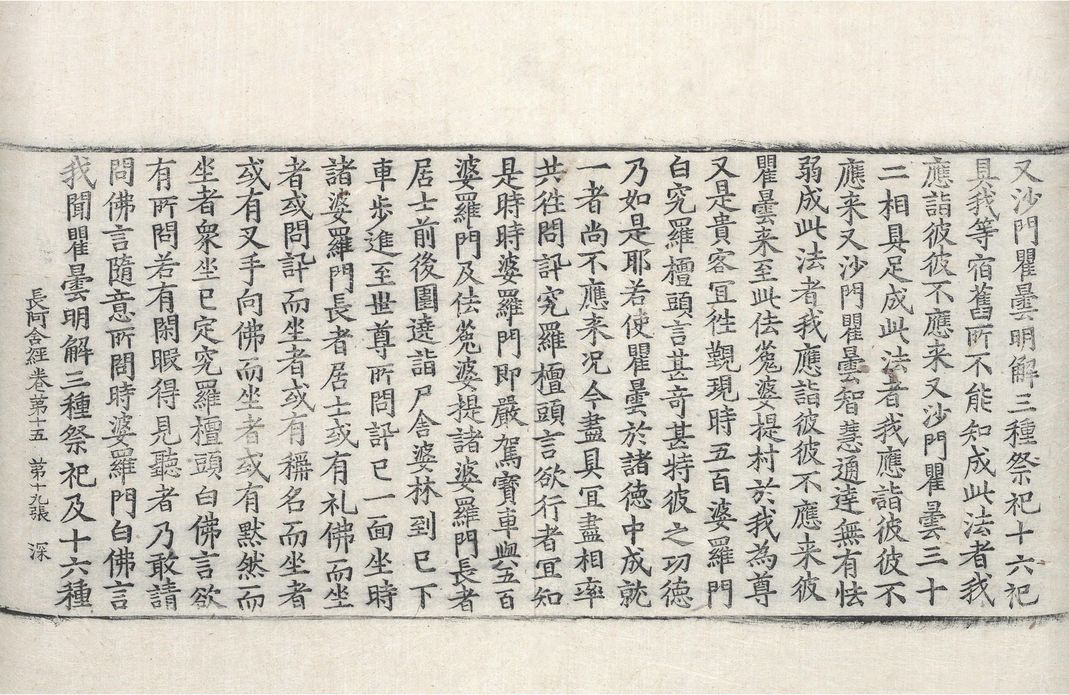 又沙門瞿曇明解三種祭祀十六祀
具我等宿舊所不能知成此法者我
應詣彼彼不應来又沙門瞿曇三十
二相具足成此法者我應詣彼彼不
應来又沙門瞿曇智慧通達無有怯
弱成此法者我應詣彼彼不應来彼
瞿曇来至此佉㝹婆提村於我為尊
又是貴客冝徃覲現時五百婆羅門
白究羅檀頭言甚竒甚特彼之功德
乃如是耶若使瞿曇於諸德中成就
一者尚不應来况今盡具冝盡相率
共徃問訊究羅檀頭言欲行者冝知
是時時婆羅門即嚴駕寶車與五百
婆羅門及佉㝹婆提諸婆羅門長者
居士前後圍遶詣尸舍婆林到已下
車步進至世尊所問訊已一面坐時
諸婆羅門長者居士或有礼佛而坐
者或問訊而坐者或有稱名而坐者
或有叉手向佛而坐者或有黙然而
坐者衆坐已定究羅檀頭白佛言欲
有所問若有閑暇得見聽者乃敢請
問佛言隨意所問時婆羅門白佛言
我聞瞿曇明解三種祭祀及十六種
長阿含經卷第十五 第十九張 深